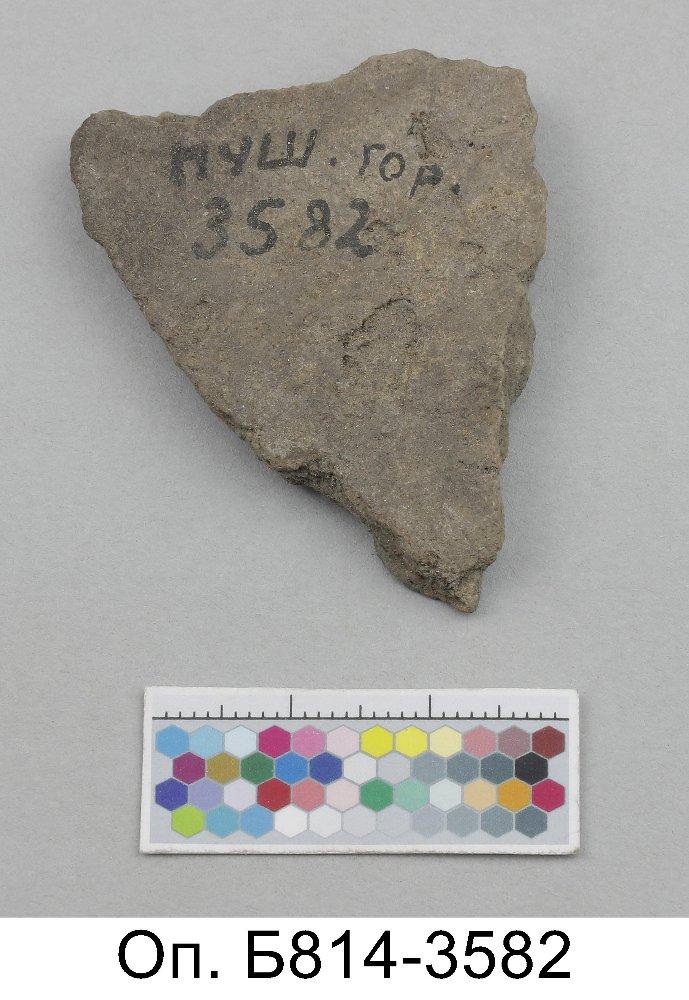 ПУШ. ГОР.
3582
Оп. Б814-3582